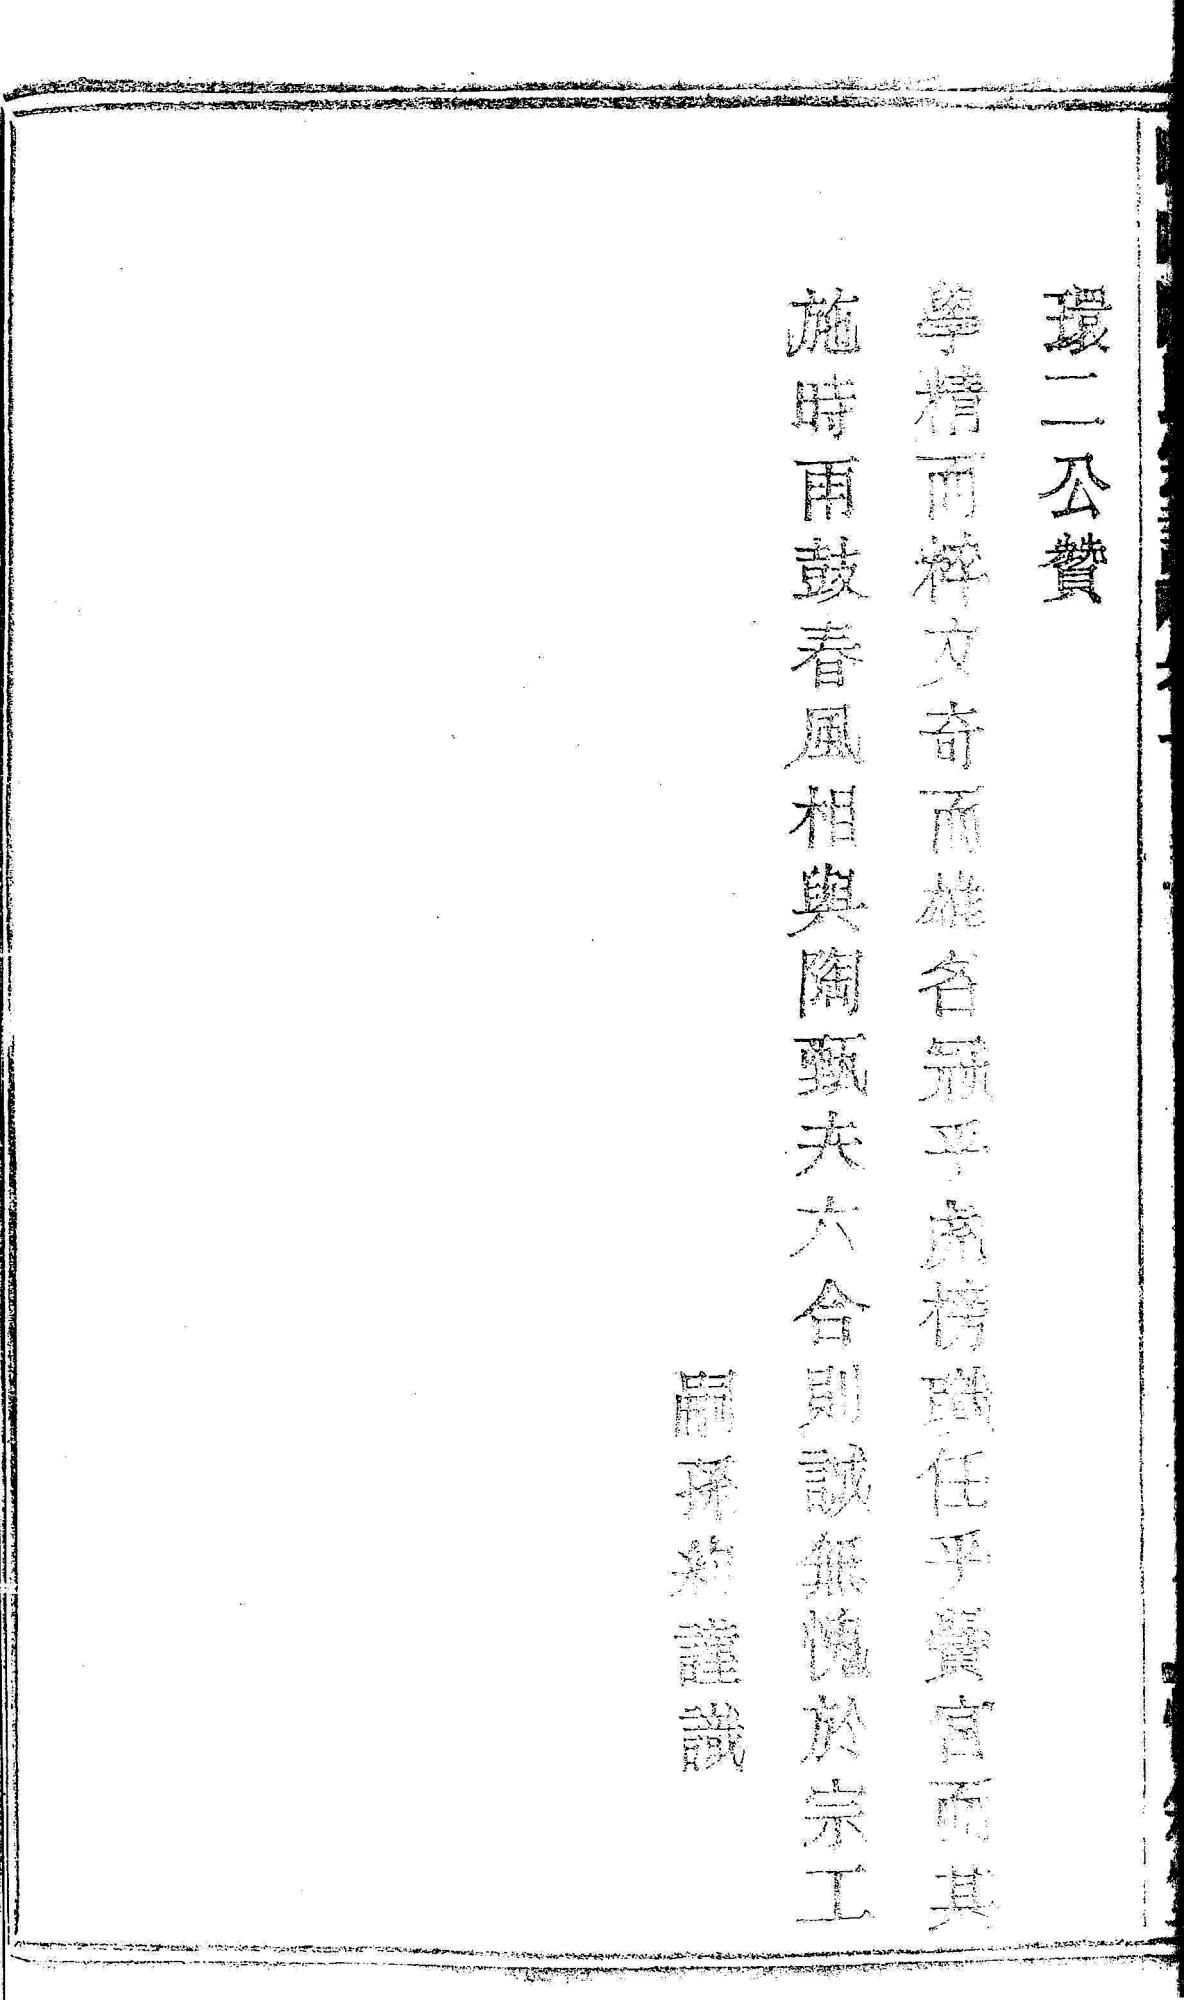 環二公贊
學精而粹文奇而雄名冠乎虎榜職任乎黌宮而其
施時雨鼓春風相與陶甄夫六合則誠無愧於宗工
嗣孫謹識